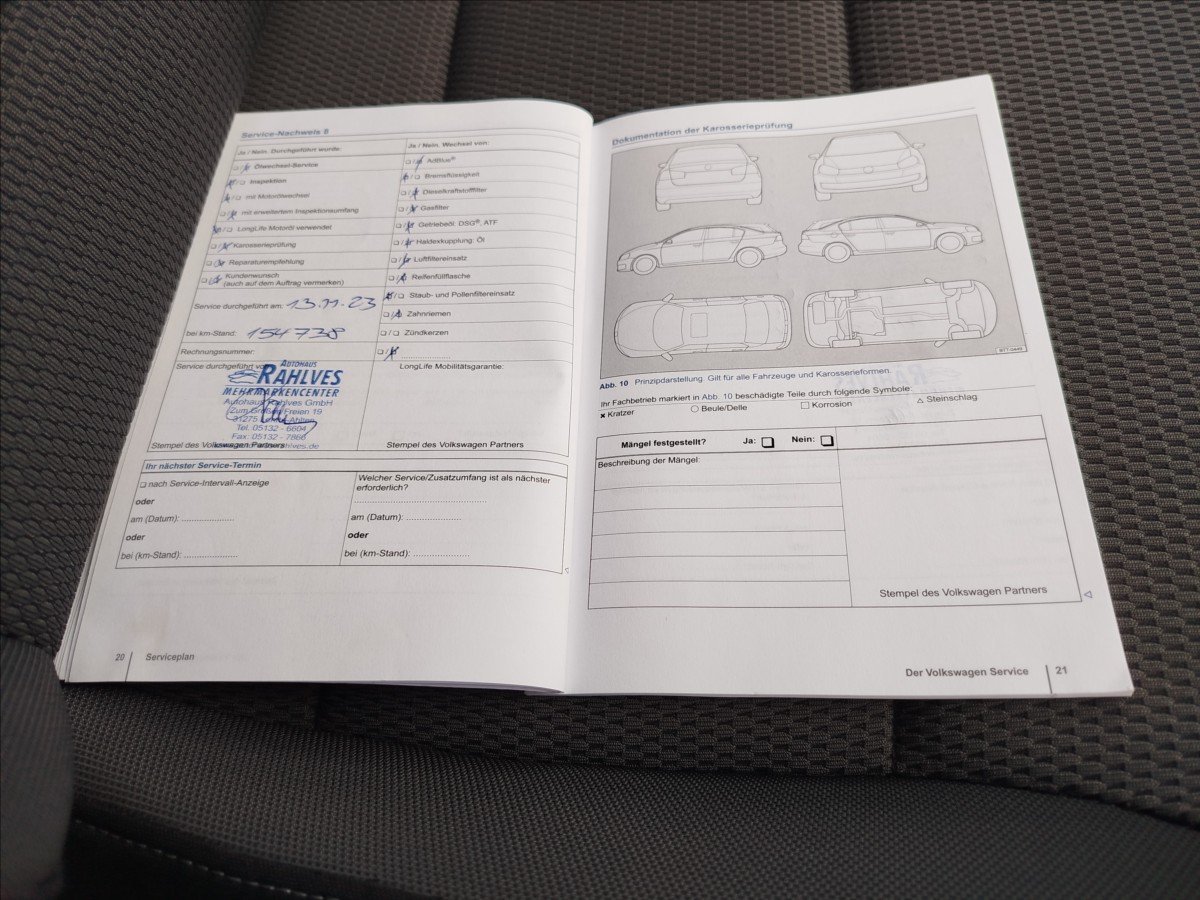 Service-Nachweis 8
Ja / Nein. Durchgeführt wurde:
Ölwechsel-Service
Inspektion
mit Motorölwechsel
mit erweitertem Inspektionsumfang
LongLife Motoröl verwendet
Karosserieprüfung
Reparaturempfehlung
Kundenwunsch
(auch auf dem Auftrag vermerken)
Service durchgeführt am: 13.11.23
bei km-Stand: 154738
Rechnungsnummer:
Service durchgeführt
AUTOHAUS
RAHLVES
MEHRMARKENCENTER
Autohaus Rahlves GmbH
Zum Großen Freien 19
31275
Tel. 05132 - 6604
Fax: 05132 -
Stempel des Volkswagen Partners
Ja / Nein. Wechsel von:
AdBlue®
Bremsflüssigkeit
Dieselkraftstofffilter
Gasfilter
Getriebeöl: DSG®, ATF
Haldexkupplung: Öl
Luftfiltereinsatz
Reifenfüllflasche
Staub- und Pollenfiltereinsatz
Zahnriemen
Zündkerzen
LongLife Mobilitätsgarantie:
Stempel des Volkswagen Partners
Ihr nächster Service-Termin
nach Service-Intervall-Anzeige
oder
am (Datum): ....................
oder
bei (km-Stand): ....................
Welcher Service/Zusatzumfang ist als nächster
erforderlich?
am (Datum): ....................
oder
bei (km-Stand): ....................
20 Serviceplan
Dokumentation der Karosserieprüfung
BTT-0449
Abb. 10 Prinzipdarstellung. Gilt für alle Fahrzeuge und Karosserieformen.
Ihr Fachbetrieb markiert in Abb. 10 beschädigte Teile durch folgende Symbole:
Kratzer Beule/Delle Korrosion Steinschlag
Mängel festgestellt? Ja: Nein:
Beschreibung der Mängel:
Stempel des Volkswagen Partners
Der Volkswagen Service 21